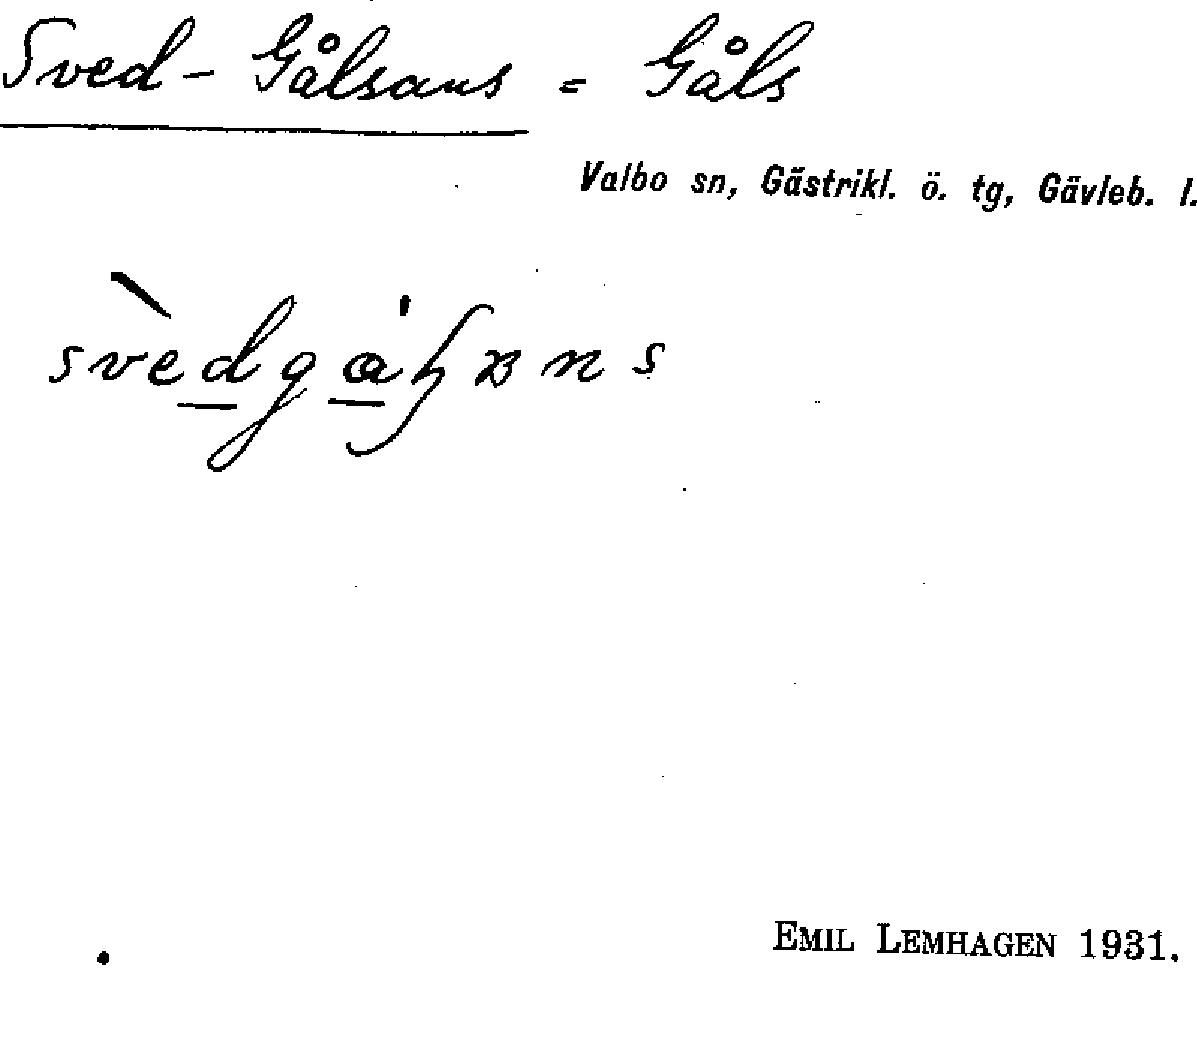 Sved-Gålsans = Gåls
Valbo sn, Gästrikl. ö. tg, Gävleb. l.
EMIL LEMHAGEN 1931.